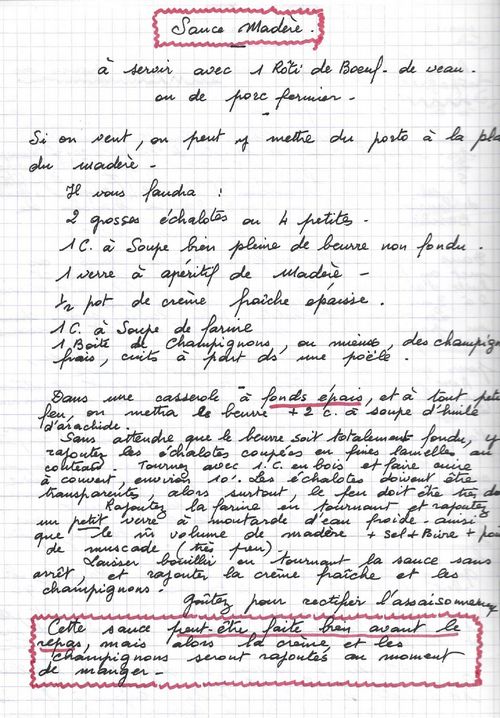 Sauce Madère.
à servir avec 1 Rôti de Boeuf. de veau.
ou de porc fermier.
Si on veut, on peut y mettre du porto à la pla
du madère.
Il vous faudra :
2 grosses échalotes ou 4 petites.
1 C. à Soupe bien pleine de beurre non fondu.
1 verre à apéritif de Madère -
1/2 pot de crème fraîche épaisse.
1 C. à Soupe de farine
1 Boîte de Champignons, ou mieux, des champign
frais, cuits à part ds une poële.
Dans une casserole à fonds épais, et à tout peti
feu, on mettra le beurre + 2 c. à soupe d'huile
d'arachide.
Sans attendre que le beurre soit totalement fondu, y
rajoutez les échalotes coupées en fines lamelles au
couteau. Tournez avec 1 C. en bois et faire cuire
à couvert, environ 10'. Les échalotes doivent être
transparentes, alors surtout, le feu doit être très do
Rajoutez la farine en tournant et rajoutez
un petit verre à moutarde d'eau froide. ainsi
que le m̄ volume de madère + Sel + Poivre +
de muscade (très peu).
Laisser bouillir en tournant la sauce sans
arrêt, et rajouter la crème fraîche et les
champignons.
Goûtez pour rectifier l'assaisonnemen
Cette sauce peut-être faite bien avant le
repas, mais alors la crème, et les
champignons seront rajoutés au moment
de manger.